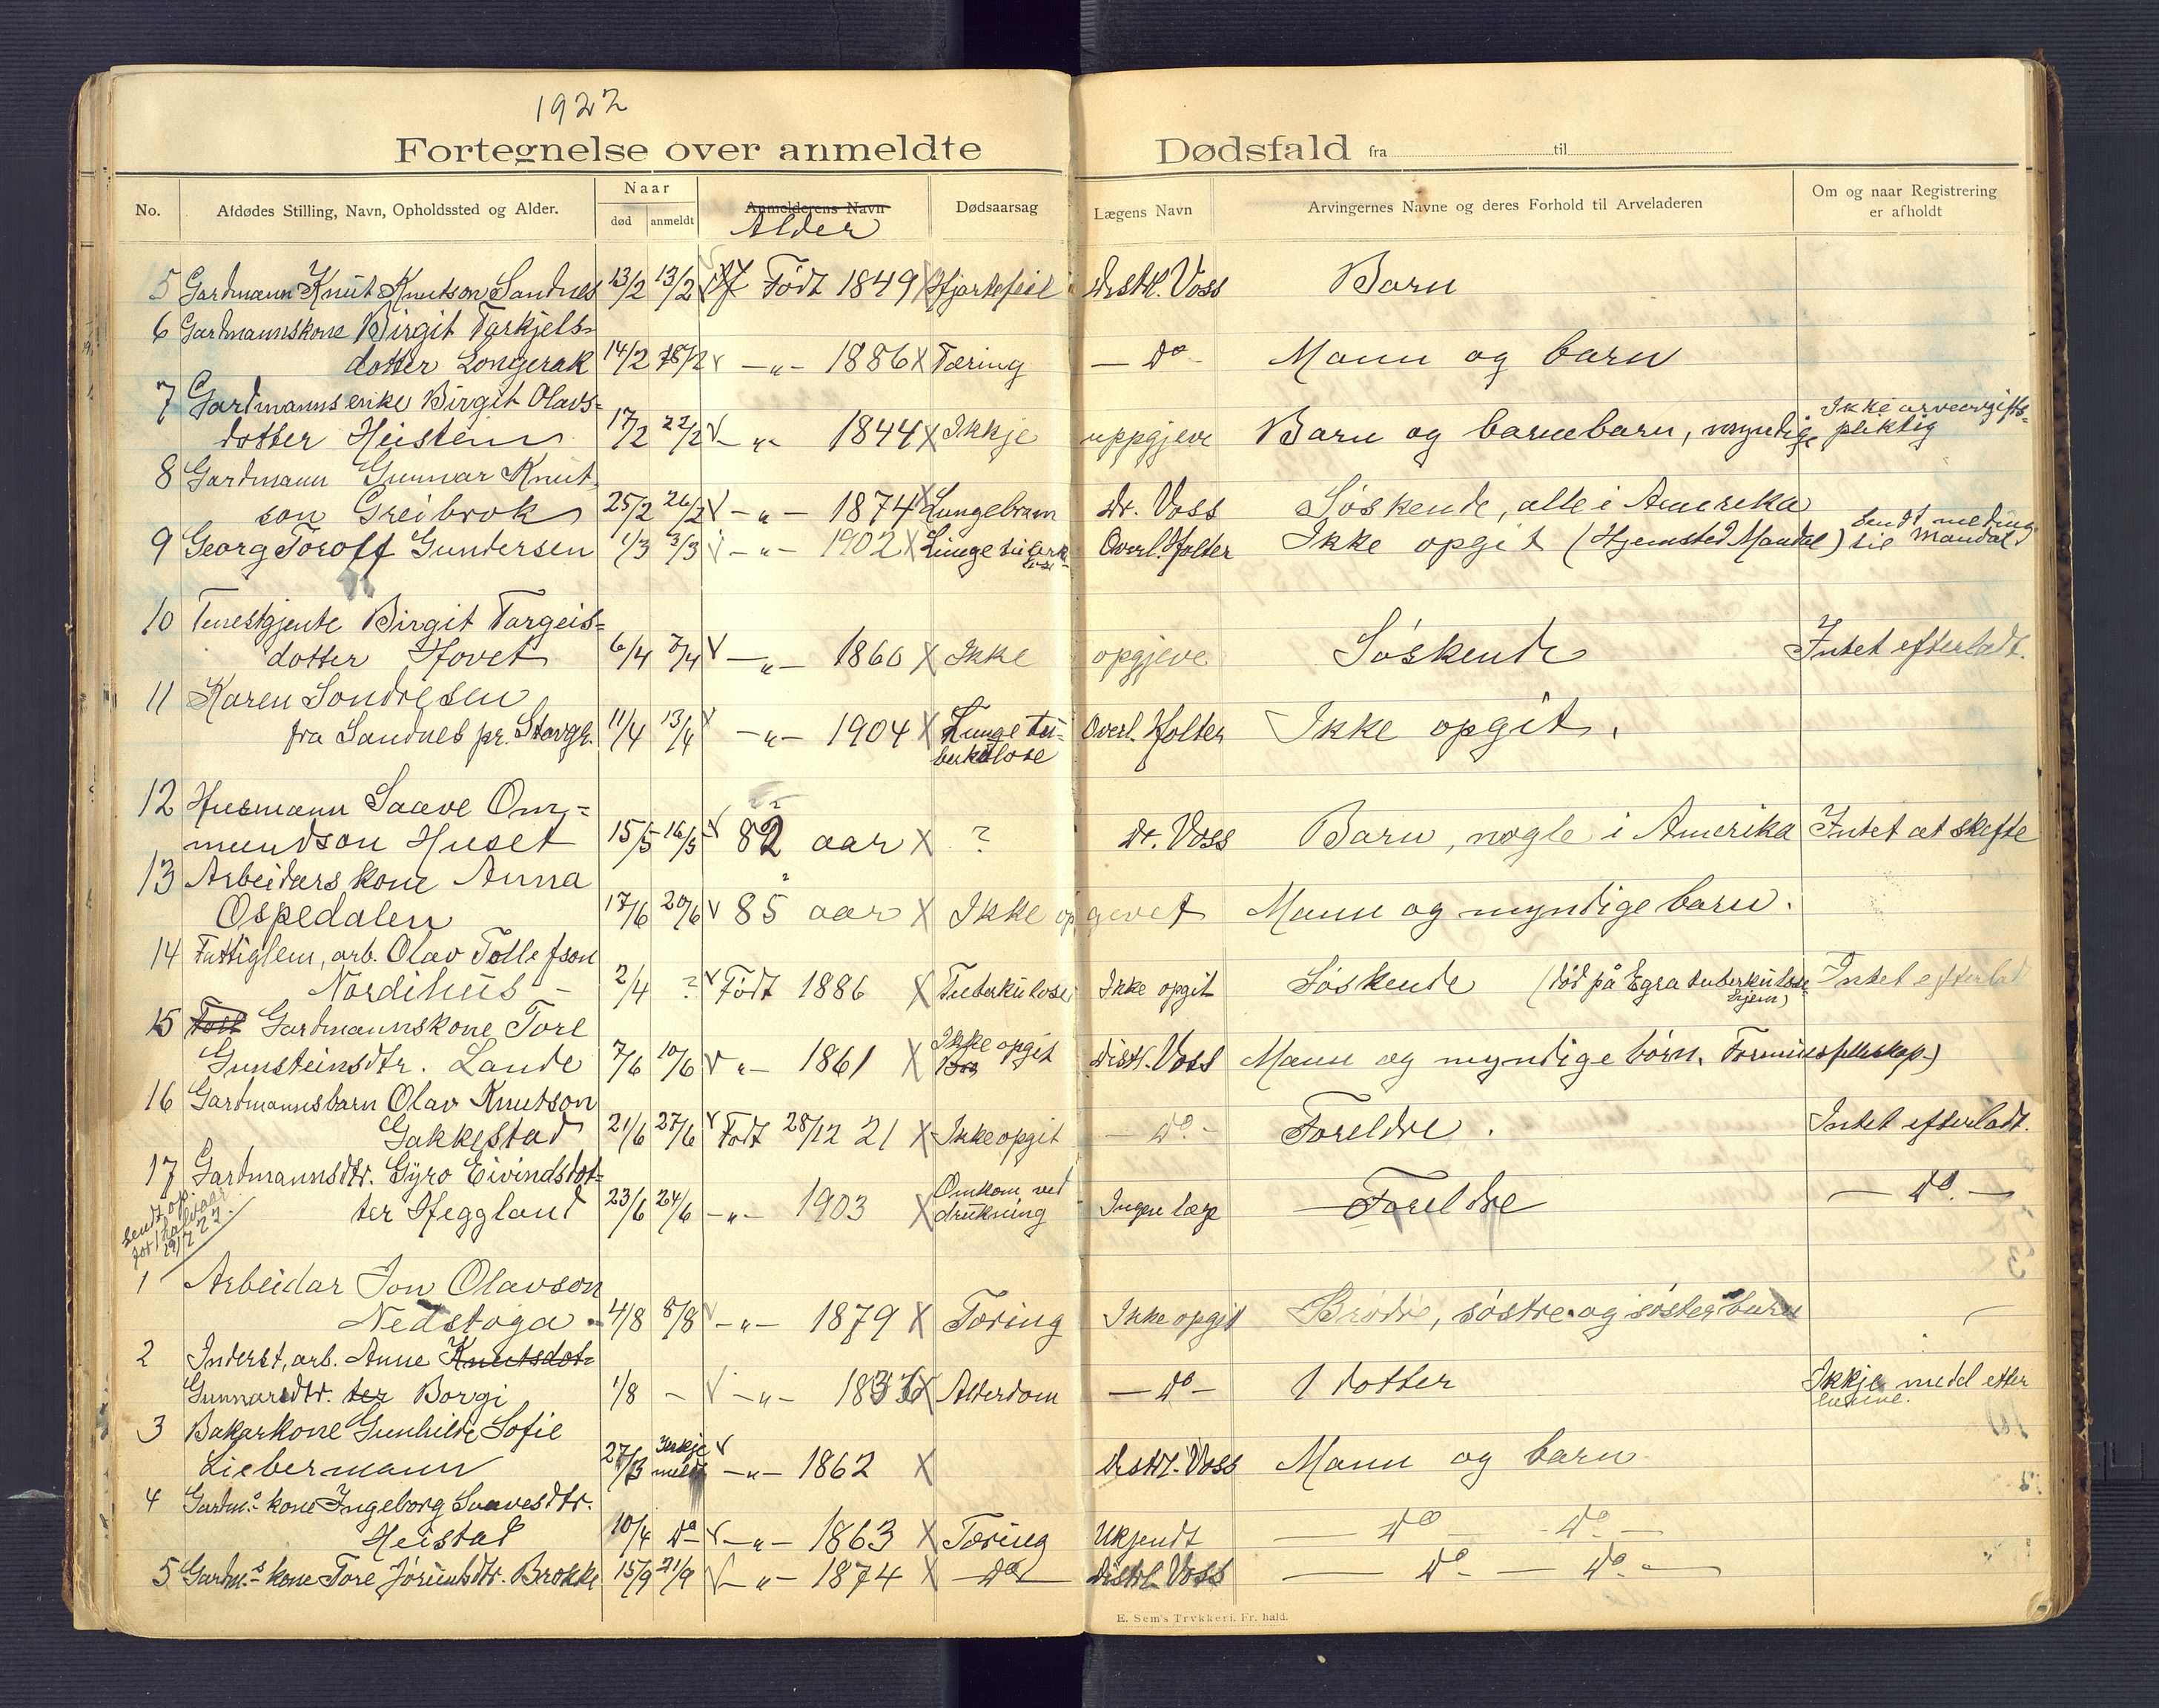 1922
Fortegnelse over anmeldte Dødsfald fra til
No. Afdødes Stilling, Navn, Opholdssted og Alder. Naar død anmeldt Anmelderens Navn Alder Dødsaarsag Lægens Navn Arvingernes Navne og deres Forhold til Arveladeren Om og naar Registrering er afholdt
5 Gardmann Knut Knutson Sandnes 13/2 13/2 Født 1849 X Hjartefeil Distrl. Voss Barn
6 Gardmannskone Birgit Tarkjels-
dotter Longerak 14/2 18/2 — „ — 1886 X Tæring — do — Mann og barn
7 Gardmannsenke Birgit Olavs=
dotter Heistein 17/2 22/2 — „ — 1844 X Ikkje uppgjeve Barn og barnebarn, myndige Ikke arveavgifts-
pliktig
8 Gardmann Gunnar Knut-
son Greibrok 25/2 26/2 — „ — 1874 X Lungebram Dr. Voss Søskende, alle i Amerika
9 Georg Toroff Gundersen 1/3 3/3 — „ — 1902 X Lungetuberk- Overl. Holter Ikke opgit (Hjemsted Mandal) Sendt melding
til Mandal
10 Tenestgjente Birgit Targeis=
dotter Hovet 6/4 7/4 — „ — 1860 X Ikke opgjeve Søskende Intet efterladt.
11 Karen Sondresen
fra Sandnes pr. Stavgr. 11/4 13/4 — „ — 1904 X Lungetu=
berkulose Overl. Holter Ikke opgit.
12 Husmann Saave Om=
mundson Huset 15/5 16/5 82 aar X ? Dr. Voss Barn, nogle i Amerika Intet at skifte
13 Arbeidars kone Anna
Ospedalen 17/6 20/6 85 aar X Ikke opgevet Mann og myndige barn.
14 Fattiglem, arb. Olav Tollefson
Nordihus - 2/4 ? Født 1886 X Tuberkulose Ikke opgit Søskende (død på Egra tuberkulose-
hjem) Intet efterladt
15 Gardmannskone Tore
Gunsteinsdtr. Lande 7/6 10/6 „ — 1861 X Ikke opgit Distl. Voss Mann og myndige börn. Formuesfelleskap.)
16 Gardmannsbarn Olav Knutson
Gakkestad 21/6 27/6 Født 28/12 21 X Ikke opgit — do — Foreldre. Intet efterladt.
17 Gardmannsdtr. Gyro Eivindsdot=
ter Heggland 23/6 24/6 — „ — 1903 X Omkom ved
drukning Ingen læge Foreldre — do. —
Sendt op.
for 1 halvaar
29/7 22.
1 Arbeidar Jon Olavson
Nedstoga 4/8 8/8 — „ — 1879 X Tæring Ikke opgit Brødre, søstre og søsterbarn —
2 Inderst, arb. Anne Knutsdot-
Gunnarsdtr. ter Borgi 1/8 - — „ — X Alderdom — do — 1 dotter Ikkje midel etter
3 Bakarkone Gunhilde Sofie
Liebermann 27/3 Ikkje
meldt — „ — 1862 X Distrl. Voss Mann og barn
4 Gardm.s kone Ingeborg Saavesdtr.
Heistad 10/4 do — „ — 1863 X Tæring Ukjendt — do — — do. —
5 Gardm.s kone Tore Jørundsdtr. Brokke 15/9 21/9 — „ — 1874 X — do — Distrl. Voss — do — — do —
E. Sem's Trykkeri, Fr. hald.